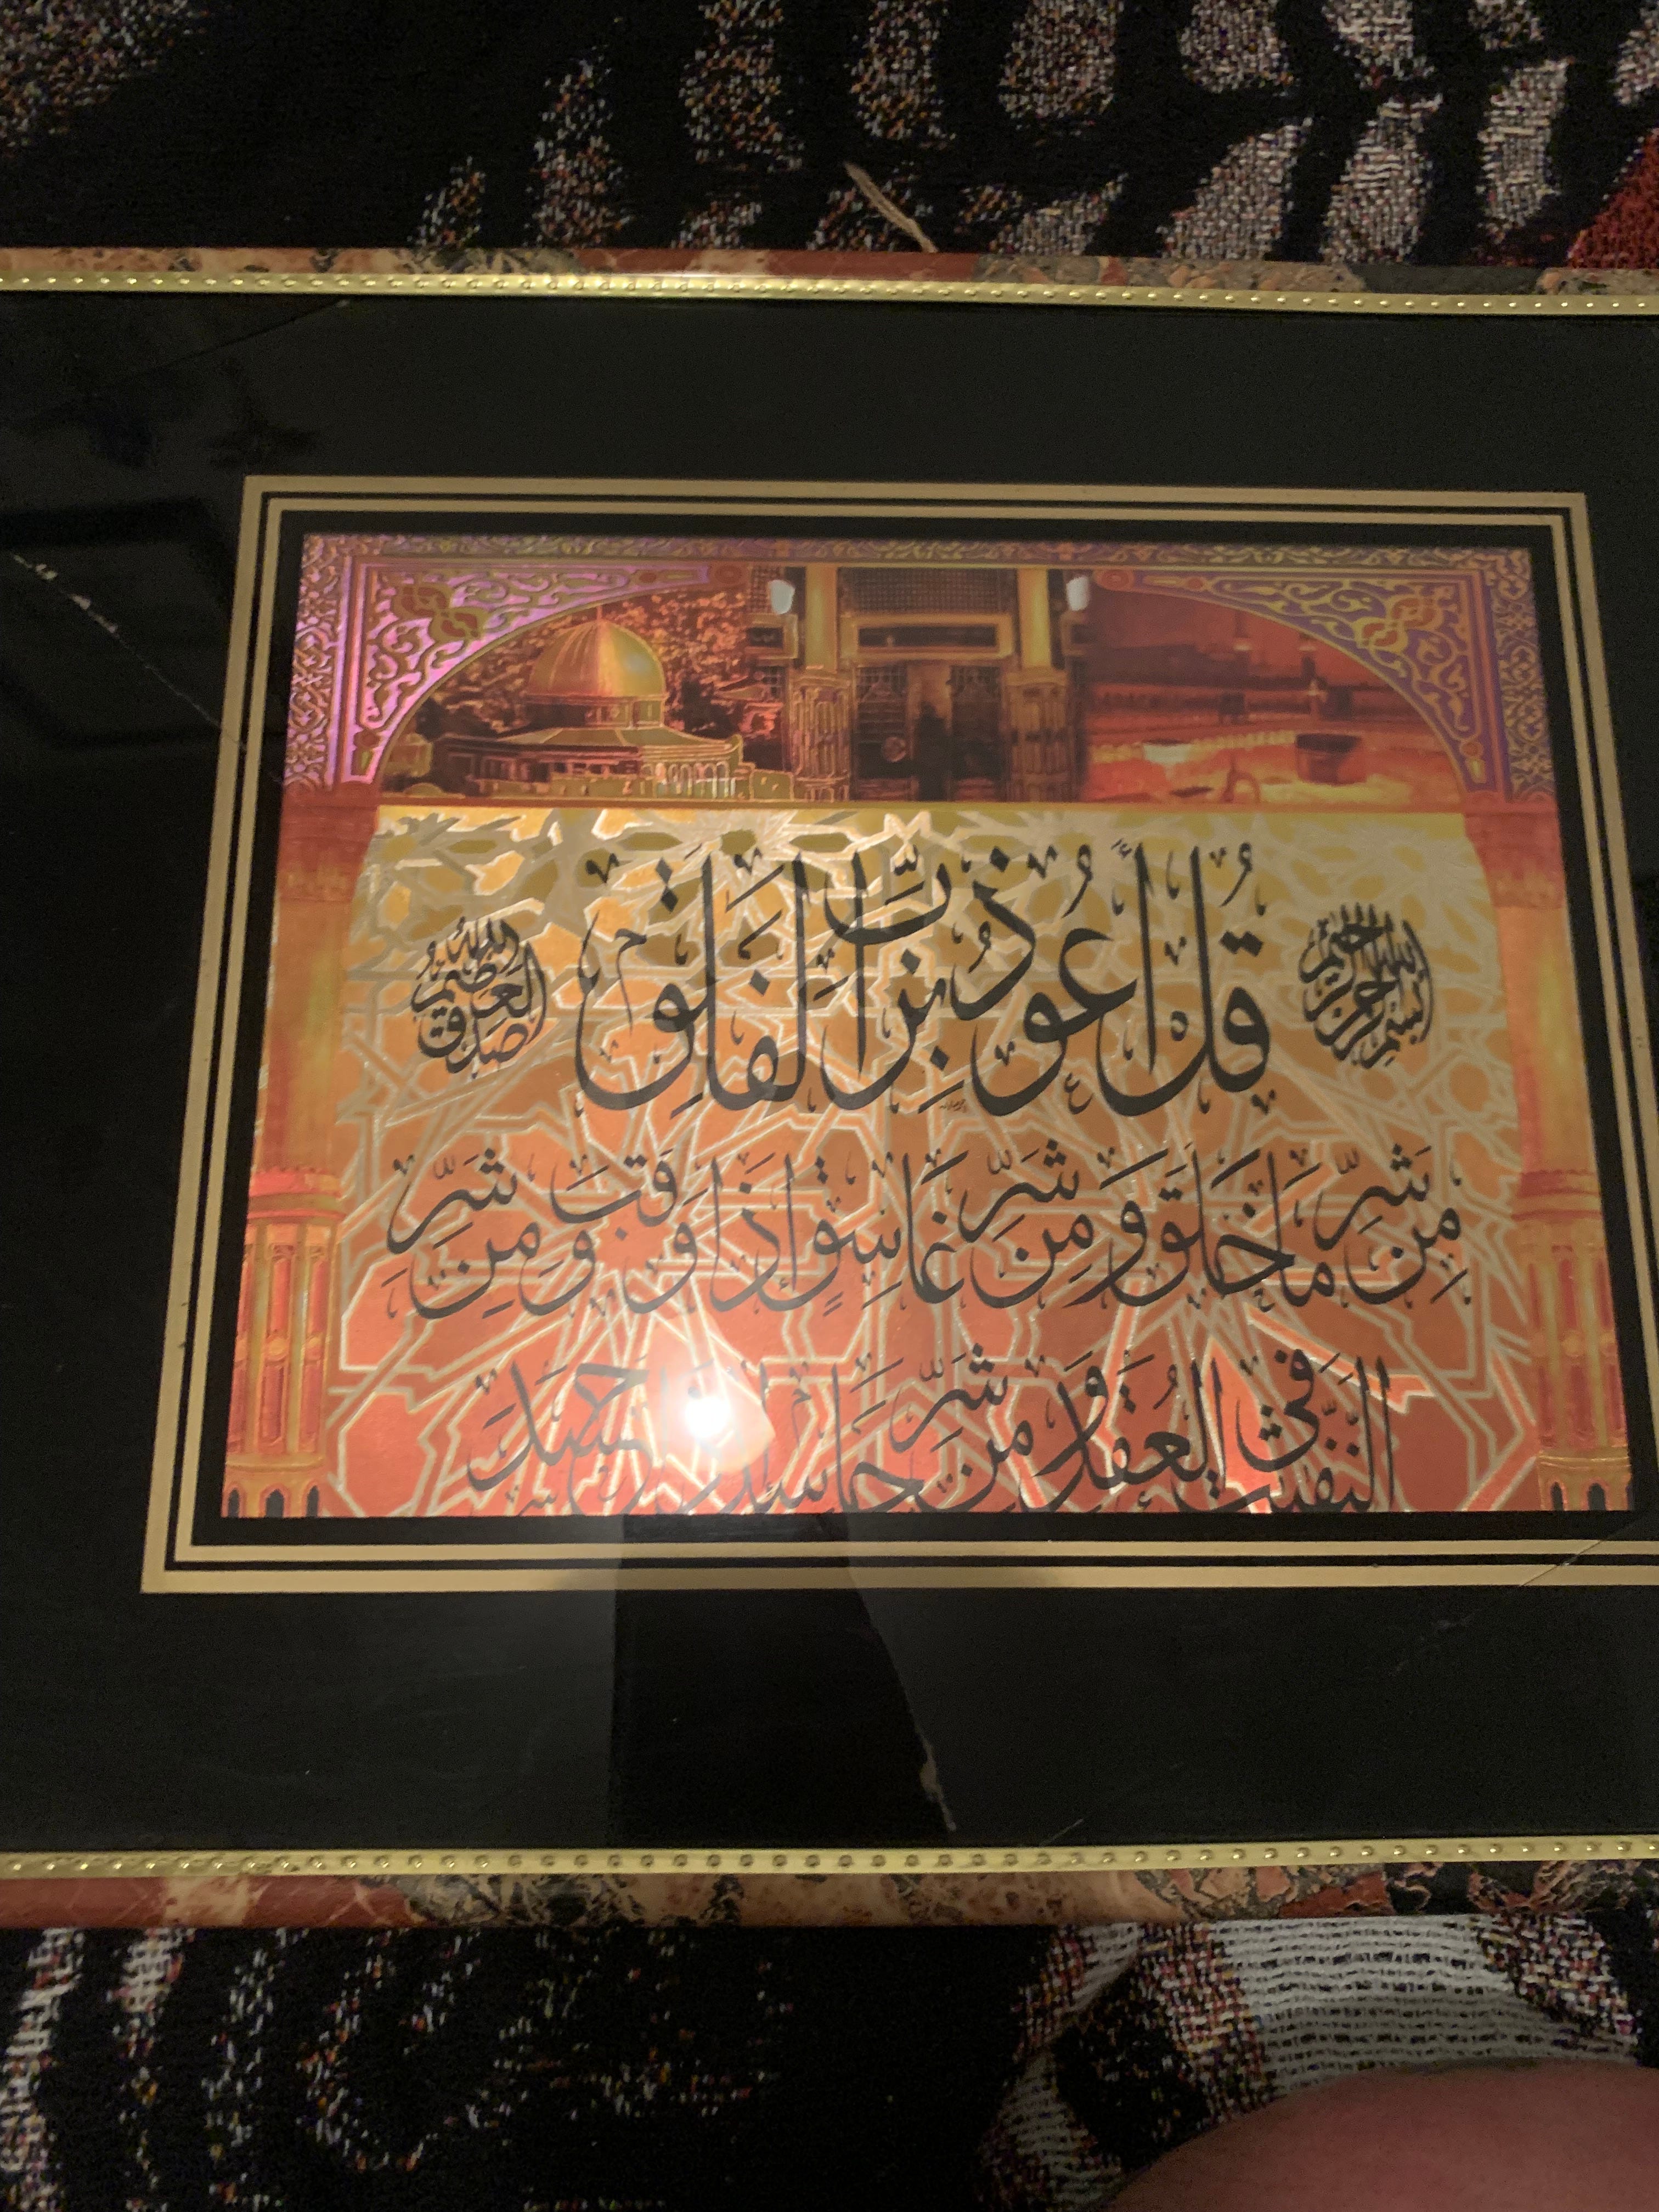 بسم الله الرحمن الرحيم
قُلْ أَعُوذُ بِرَبِّ الْفَلَقِ
صدق الله العظيم
مِن شَرِّ مَا خَلَقَ وَمِن شَرِّ غَاسِقٍ إِذَا وَقَبَ وَمِن شَرِّ
النَّفَّٰثَٰتِ فِي الْعُقَدِ وَمِن شَرِّ حَاسِدٍ إِذَا حَسَدَ